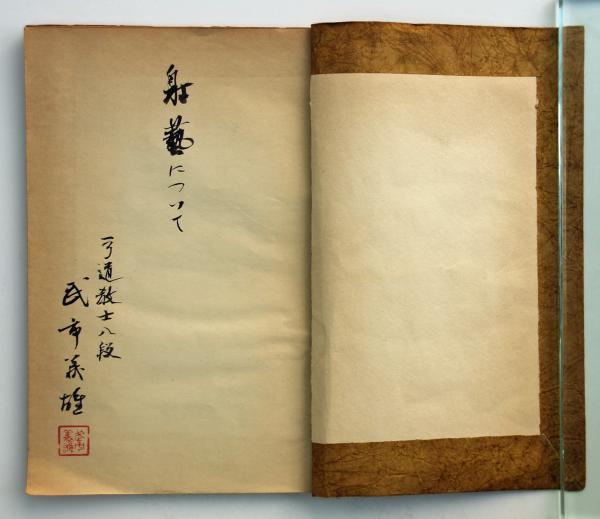 射藝について
弓道教士八段
武市義雄